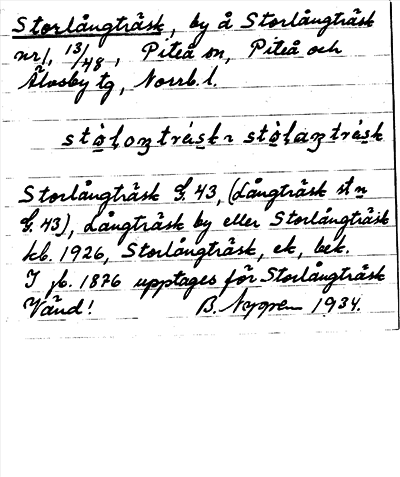 Storlångträsk, by å Storlångträsk
nr 1, 13/48, Piteå sn, Piteå och
Älvsby tg, Norrb. l.
Storlångträsk G. 43, (Långträsk stn
G. 43), Långträsk by eller Storlångträsk
kb. 1926, Storlångträsk, ek, bek.
I jb. 1876 upptages för Storlångträsk
Vänd! B. Nygren 1934.